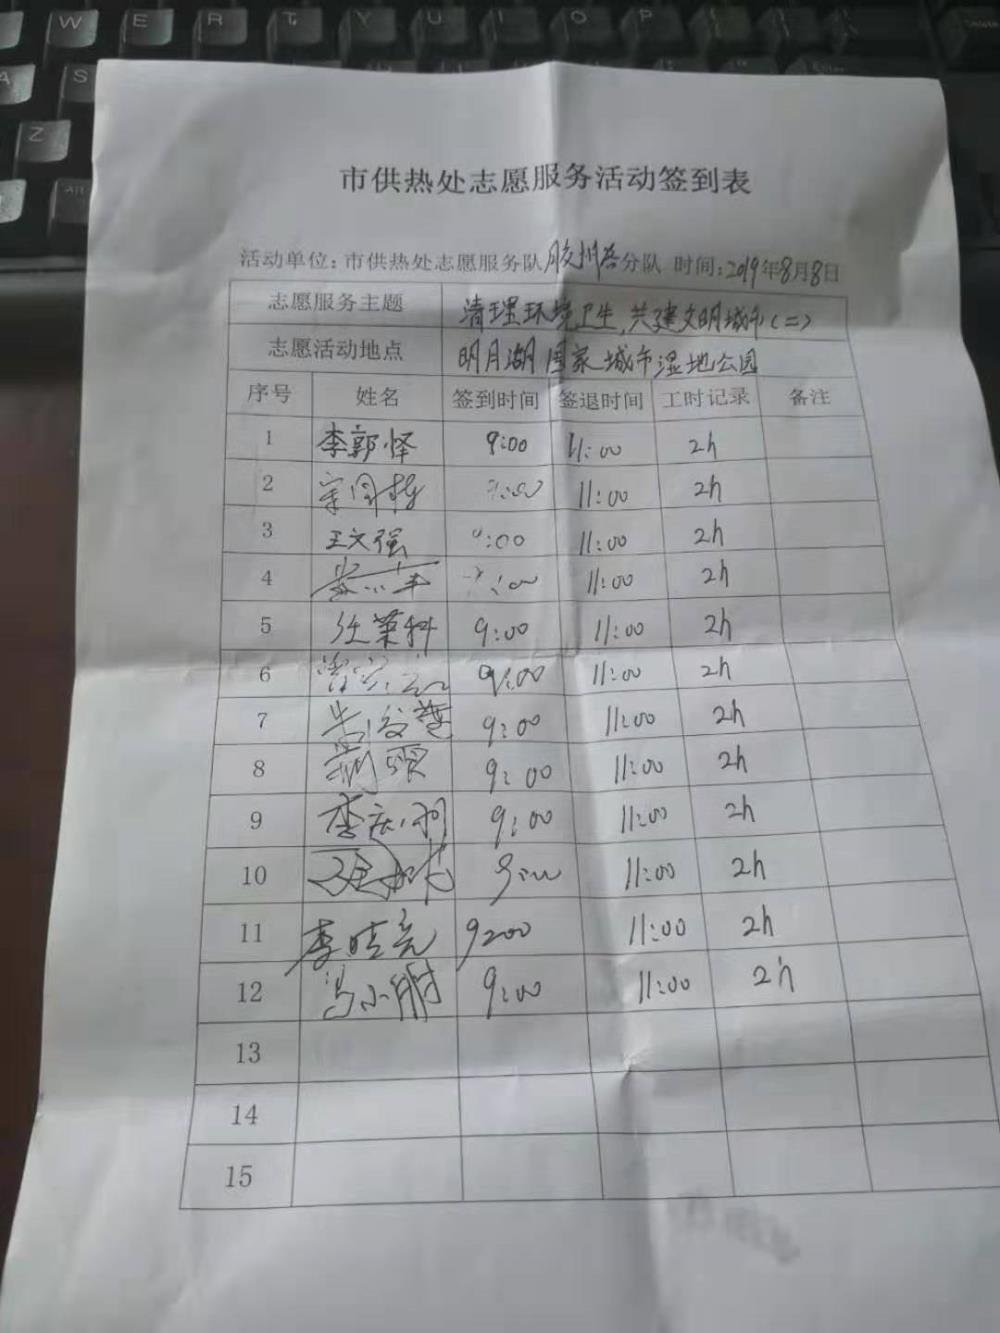 W E R T Y U I O P
A S
Z
Alt
市供热处志愿服务活动签到表
活动单位：市供热处志愿服务队胶州路分队 时间：2019年8月8日
志愿服务主题 清理环境卫生，共建文明城市（二）
志愿活动地点 明月湖国家城市湿地公园
序号 姓名 签到时间 签退时间 工时记录 备注
1 李郭怿 9:00 11:00 2h
2 9:00 11:00 2h
3 王文强 9:00 11:00 2h
4 11:00 2h
5 任业科 9:00 11:00 2h
6 9:00 11:00 2h
7 9:00 11:00 2h
8 9:00 11:00 2h
9 李庆羽 9:00 11:00 2h
10 9:00 11:00 2h
11 李晓亮 9:00 11:00 2h
12 冯小刚 9:00 11:00 2h
13
14
15